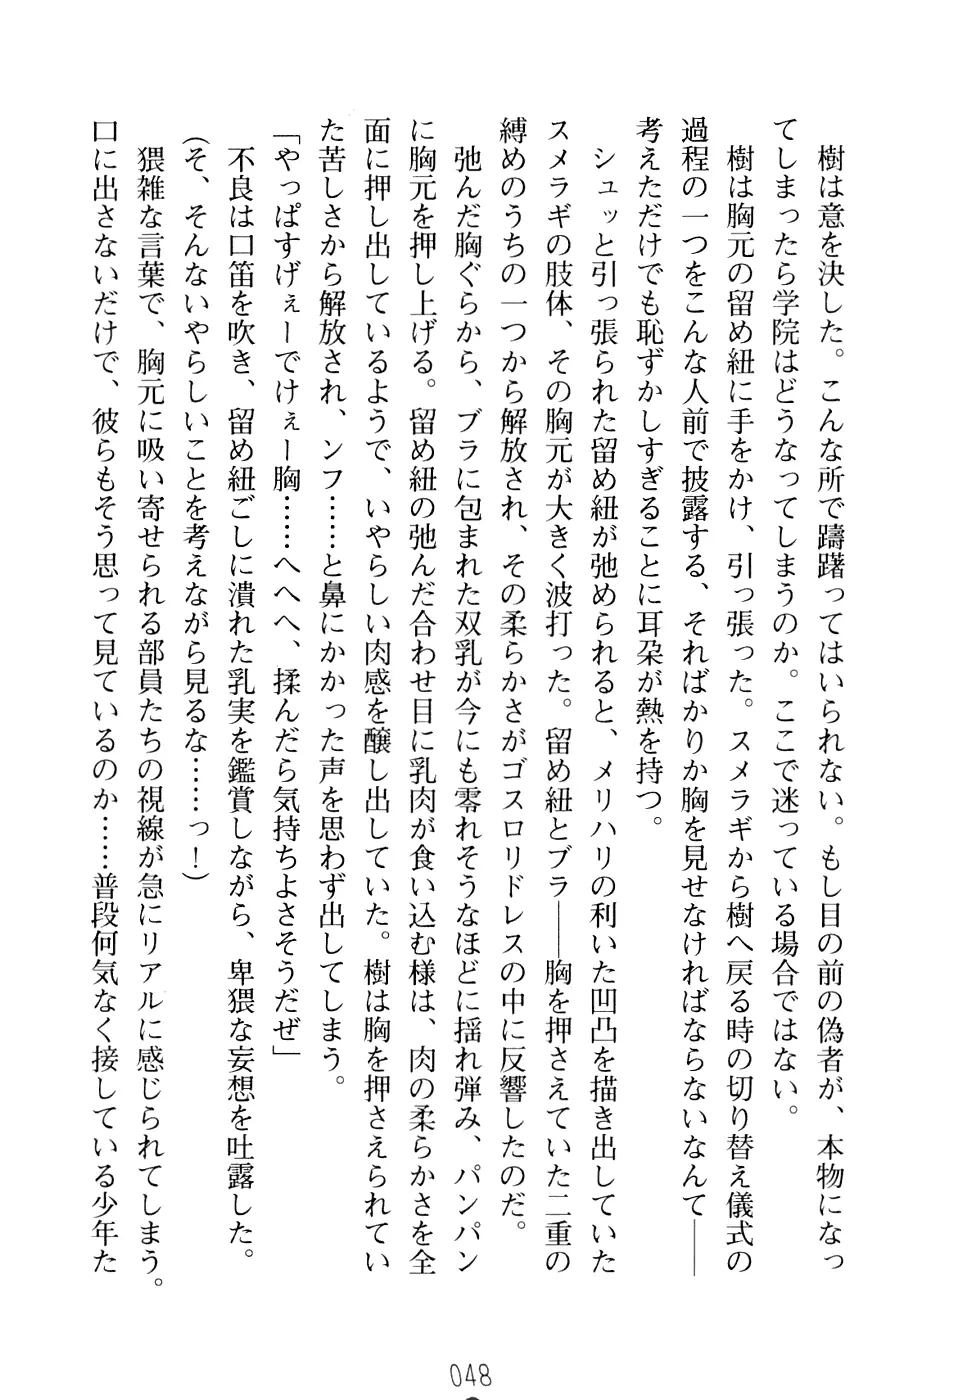 樹は意を決した。こんな所で躊躇ってはいられない。もし目の前の偽者が、本物になっ
てしまったら学院はどうなってしまうのか。ここで迷っている場合ではない。
樹は胸元の留め紐に手をかけ、引っ張った。スメラギから樹へ戻る時の切り替え儀式の
過程の一つをこんな人前で披露する、そればかりか胸を見せなければならないなんて――
考えただけでも恥ずかしすぎることに耳朶が熱を持つ。
シュッと引っ張られた留め紐が弛められると、メリハリの利いた凹凸を描き出していた
スメラギの肢体、その胸元が大きく波打った。留め紐とブラ――胸を押さえていた二重の
縛めのうちの一つから解放され、その柔らかさがゴスロリドレスの中に反響したのだ。
弛んだ胸ぐらから、ブラに包まれた双乳が今にも零れそうなほどに揺れ弾み、パンパン
に胸元を押し上げる。留め紐の弛んだ合わせ目に乳肉が食い込む様は、肉の柔らかさを全
面に押し出しているようで、いやらしい肉感を醸し出していた。樹は胸を押さえられてい
た苦しさから解放され、ンフ……と鼻にかかった声を思わず出してしまう。
「やっぱすげぇーでけぇー胸……へへへ、揉んだら気持ちよさそうだぜ」
不良は口笛を吹き、留め紐ごしに潰れた乳実を鑑賞しながら、卑猥な妄想を吐露した。
(そ、そんないやらしいことを考えながら見るな……っ！)
猥雑な言葉で、胸元に吸い寄せられる部員たちの視線が急にリアルに感じられてしまう。
口に出さないだけで、彼らもそう思って見ているのか……普段何気なく接している少年た
048